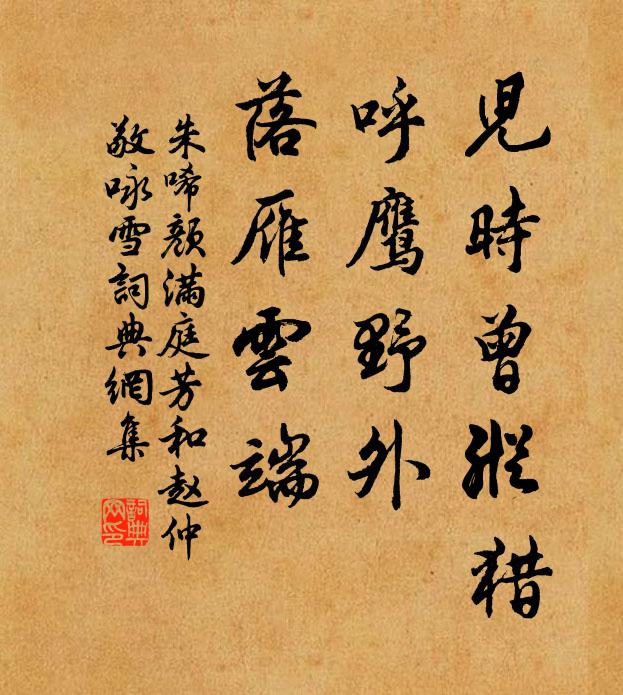 兒時曾縱猎
呼鷹野外
落雁雲端
朱唏顏滿庭芳和赵仲
敬咏雪詞典網集
詞典
网印